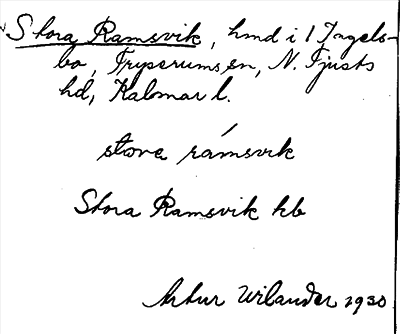 Stora Ramsvik, hmd i 1 Ingels-
bo, Tryserums sn, N. Tjusts
hd, Kalmar l.
stora rámsvik
Stora Ramsvik hb
Artur Wilander 1930